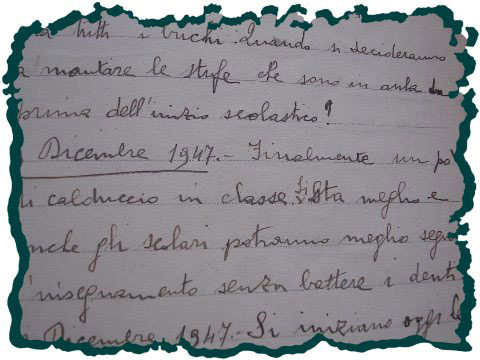 tutti i buchi. Quando si decideranno
a montare le stufe che sono in aula da
prima dell'inizio scolastico?
Dicembre 1947.- Finalmente un po'
di calduccio in classe. Si sta meglio e
anche gli scolari potranno meglio segui
l'insegnamento senza battere i denti
Dicembre 1947.- Si iniziano oggi le